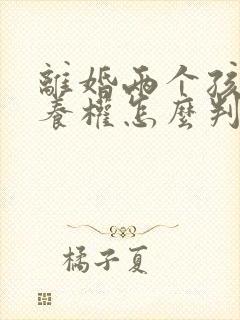 離婚兩个孩
養權怎麼判
橘子夏